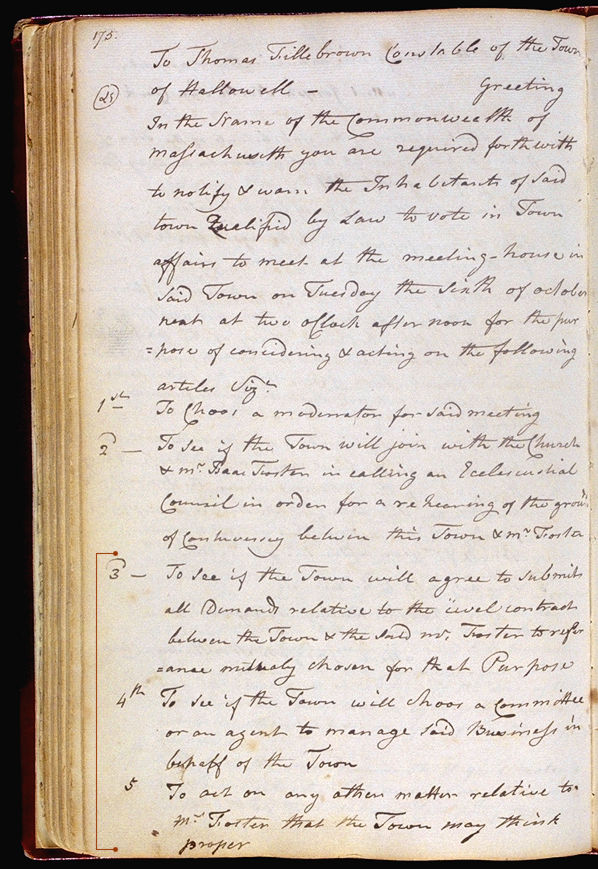 175.
To Thomas Fillebrown Constable of the Town
(25) of Hallowell – Greeting
In the Name of the Commonwealth of
Massachuseth you are required forthwith
to notify & warn the Inhabitants of Said
town Qualified by Law to vote in Town
affairs to meet at the meeting-house in
Said Town on Tuesday the Sixth of october
next at two oClock after noon for the pur
=pose of considering & acting on the following
articles Viz.t
1st To Choos a moderator for said meeting
2 – To See if the Town will join with the Church
& mr. Isaac Foster in calling an Eclesiastial
Council in order for a rehearing of the grou
of Controversey betwen this Town & mr Foster
3 – To See if the Town will agree to Submit
all Demands relative to the civel contract
between the Town & the Said mr. Foster to refer
=ance mutualy chosen for that Purpose
4th To See if the Town will choos a Committee
or an agent to manage Said Business in
behalf of the Town
5 To act on any other matter relative to
mr Foster that the Town may think
proper